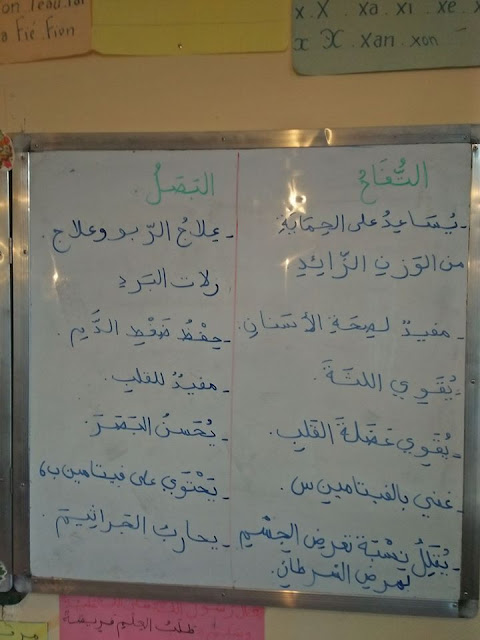 x . X . xa . xi . xe . x
x X . xan . xon
a Fié . Fion
التُّفَاحُ
- يُسَاعِدُ على الحِمَايَةِ
من الوَزنِ الزَّائِدِ
- مفيدٌ لِصِحَةِ الأَسْنَانِ.
- يُقَوِي اللثَةَ.
- يُقَوِي عَضَلَةَ القَلبِ.
- غني بالفيتامين س.
- يُقَلِلُ نِسْبَةَ تعرضِ الجِسْمِ
لمرضِ السرطانِ.
البَصَلُ
- عِلاجُ الرّبو وعلاج.
زلات البَردِ
- حِفْظُ ضَغْطِ الدَّمِ.
- مفيدٌ للقلبِ.
- يُحَسنُ البَصَرَ.
- يَحْتَوِي على فيتامين ب6
- يحاربُ الجَراثِيمَ.
طلب العلم فريضة